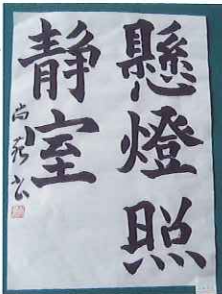 懸燈照
静室